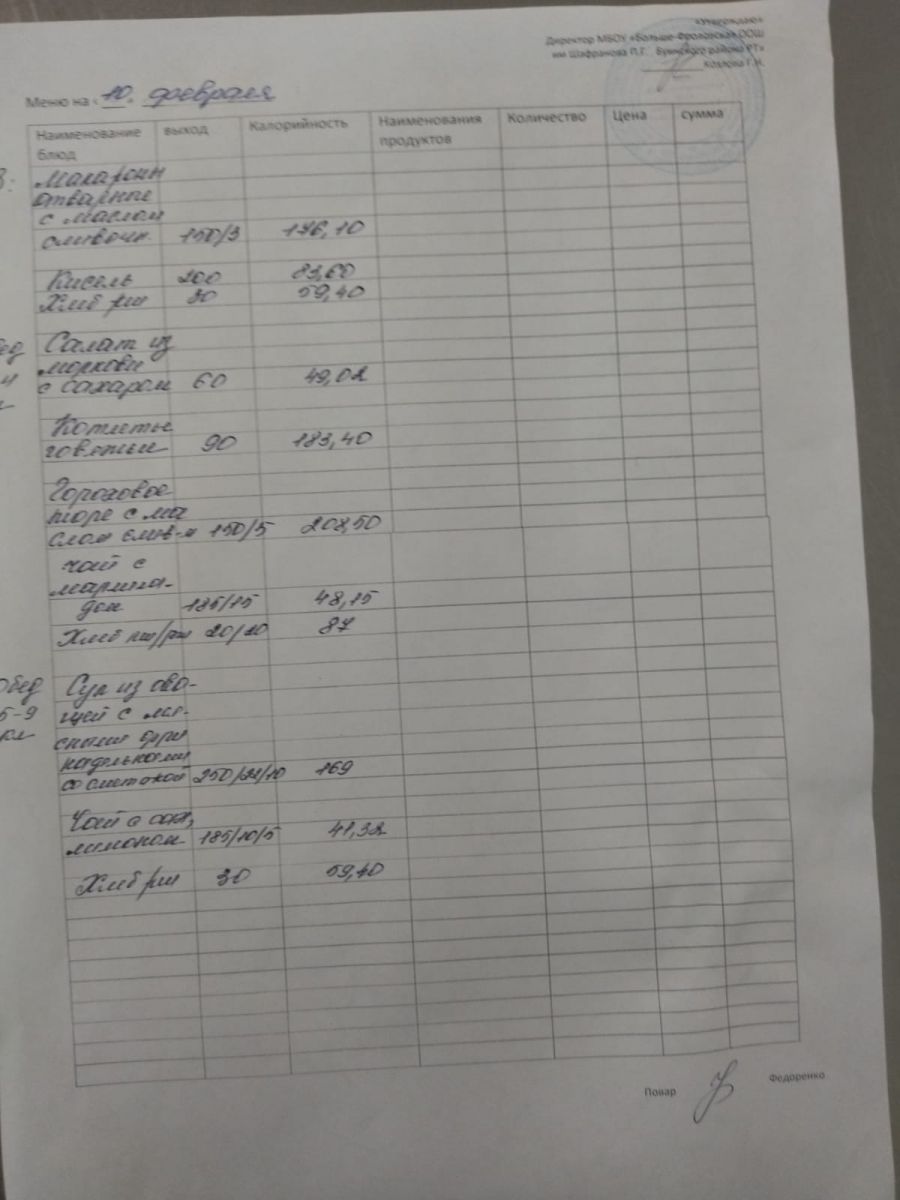 «Утверждаю»
Директор МБОУ «Больше-Фроловская ООШ
им Шафранова П.Г. Буинского района РТ»
Козлова Г.Н.
Меню на «10» февраля
Наименование блюд выход Калорийность Наименования продуктов Количество Цена сумма
Макароны
отварные
с маслом
сливочн. 150/3 176,10
Кисель 200 83,60
Хлеб рж 30 59,40
Салат из
моркови
с сахаром 60 49,02
Котлеты
говяжьи 90 183,40
Гороховое
пюре с ма
слом слив-м 150/5 208,50
чай с
мармела-
дом 185/15 48,15
Хлеб пш/рж 20/20 87
Обед Суп из ово-
5-9 щей с мя-
кл сными фри
кадельками
со сметаной 250/22/10 169
Чай с сах,
лимоном 185/10/5 41,32
Хлеб рж 30 59,40
Повар Федоренко